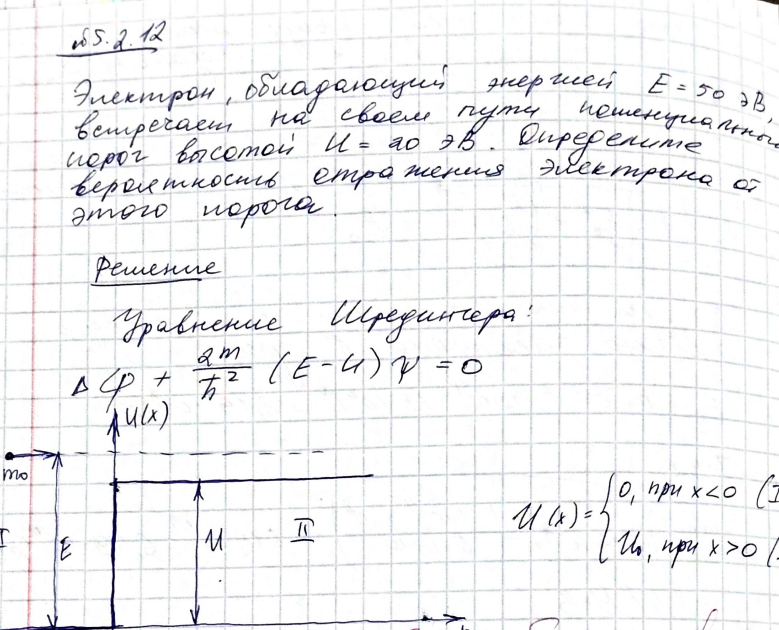 №5.2.12
Электрон, обладающий энергией E = 50 эВ,
встречает на своем пути потенциального
порог высотой U = 20 эВ. Определите
вероятность отражения электрона от
этого порога.
Решение
Уравнение Шредингера:
Δφ + 2m/ħ² (E-U)ψ = 0
U(x)
m₀
I
E
U
II
U(x) = { 0, при x<0 (I
U₀, при x>0 (